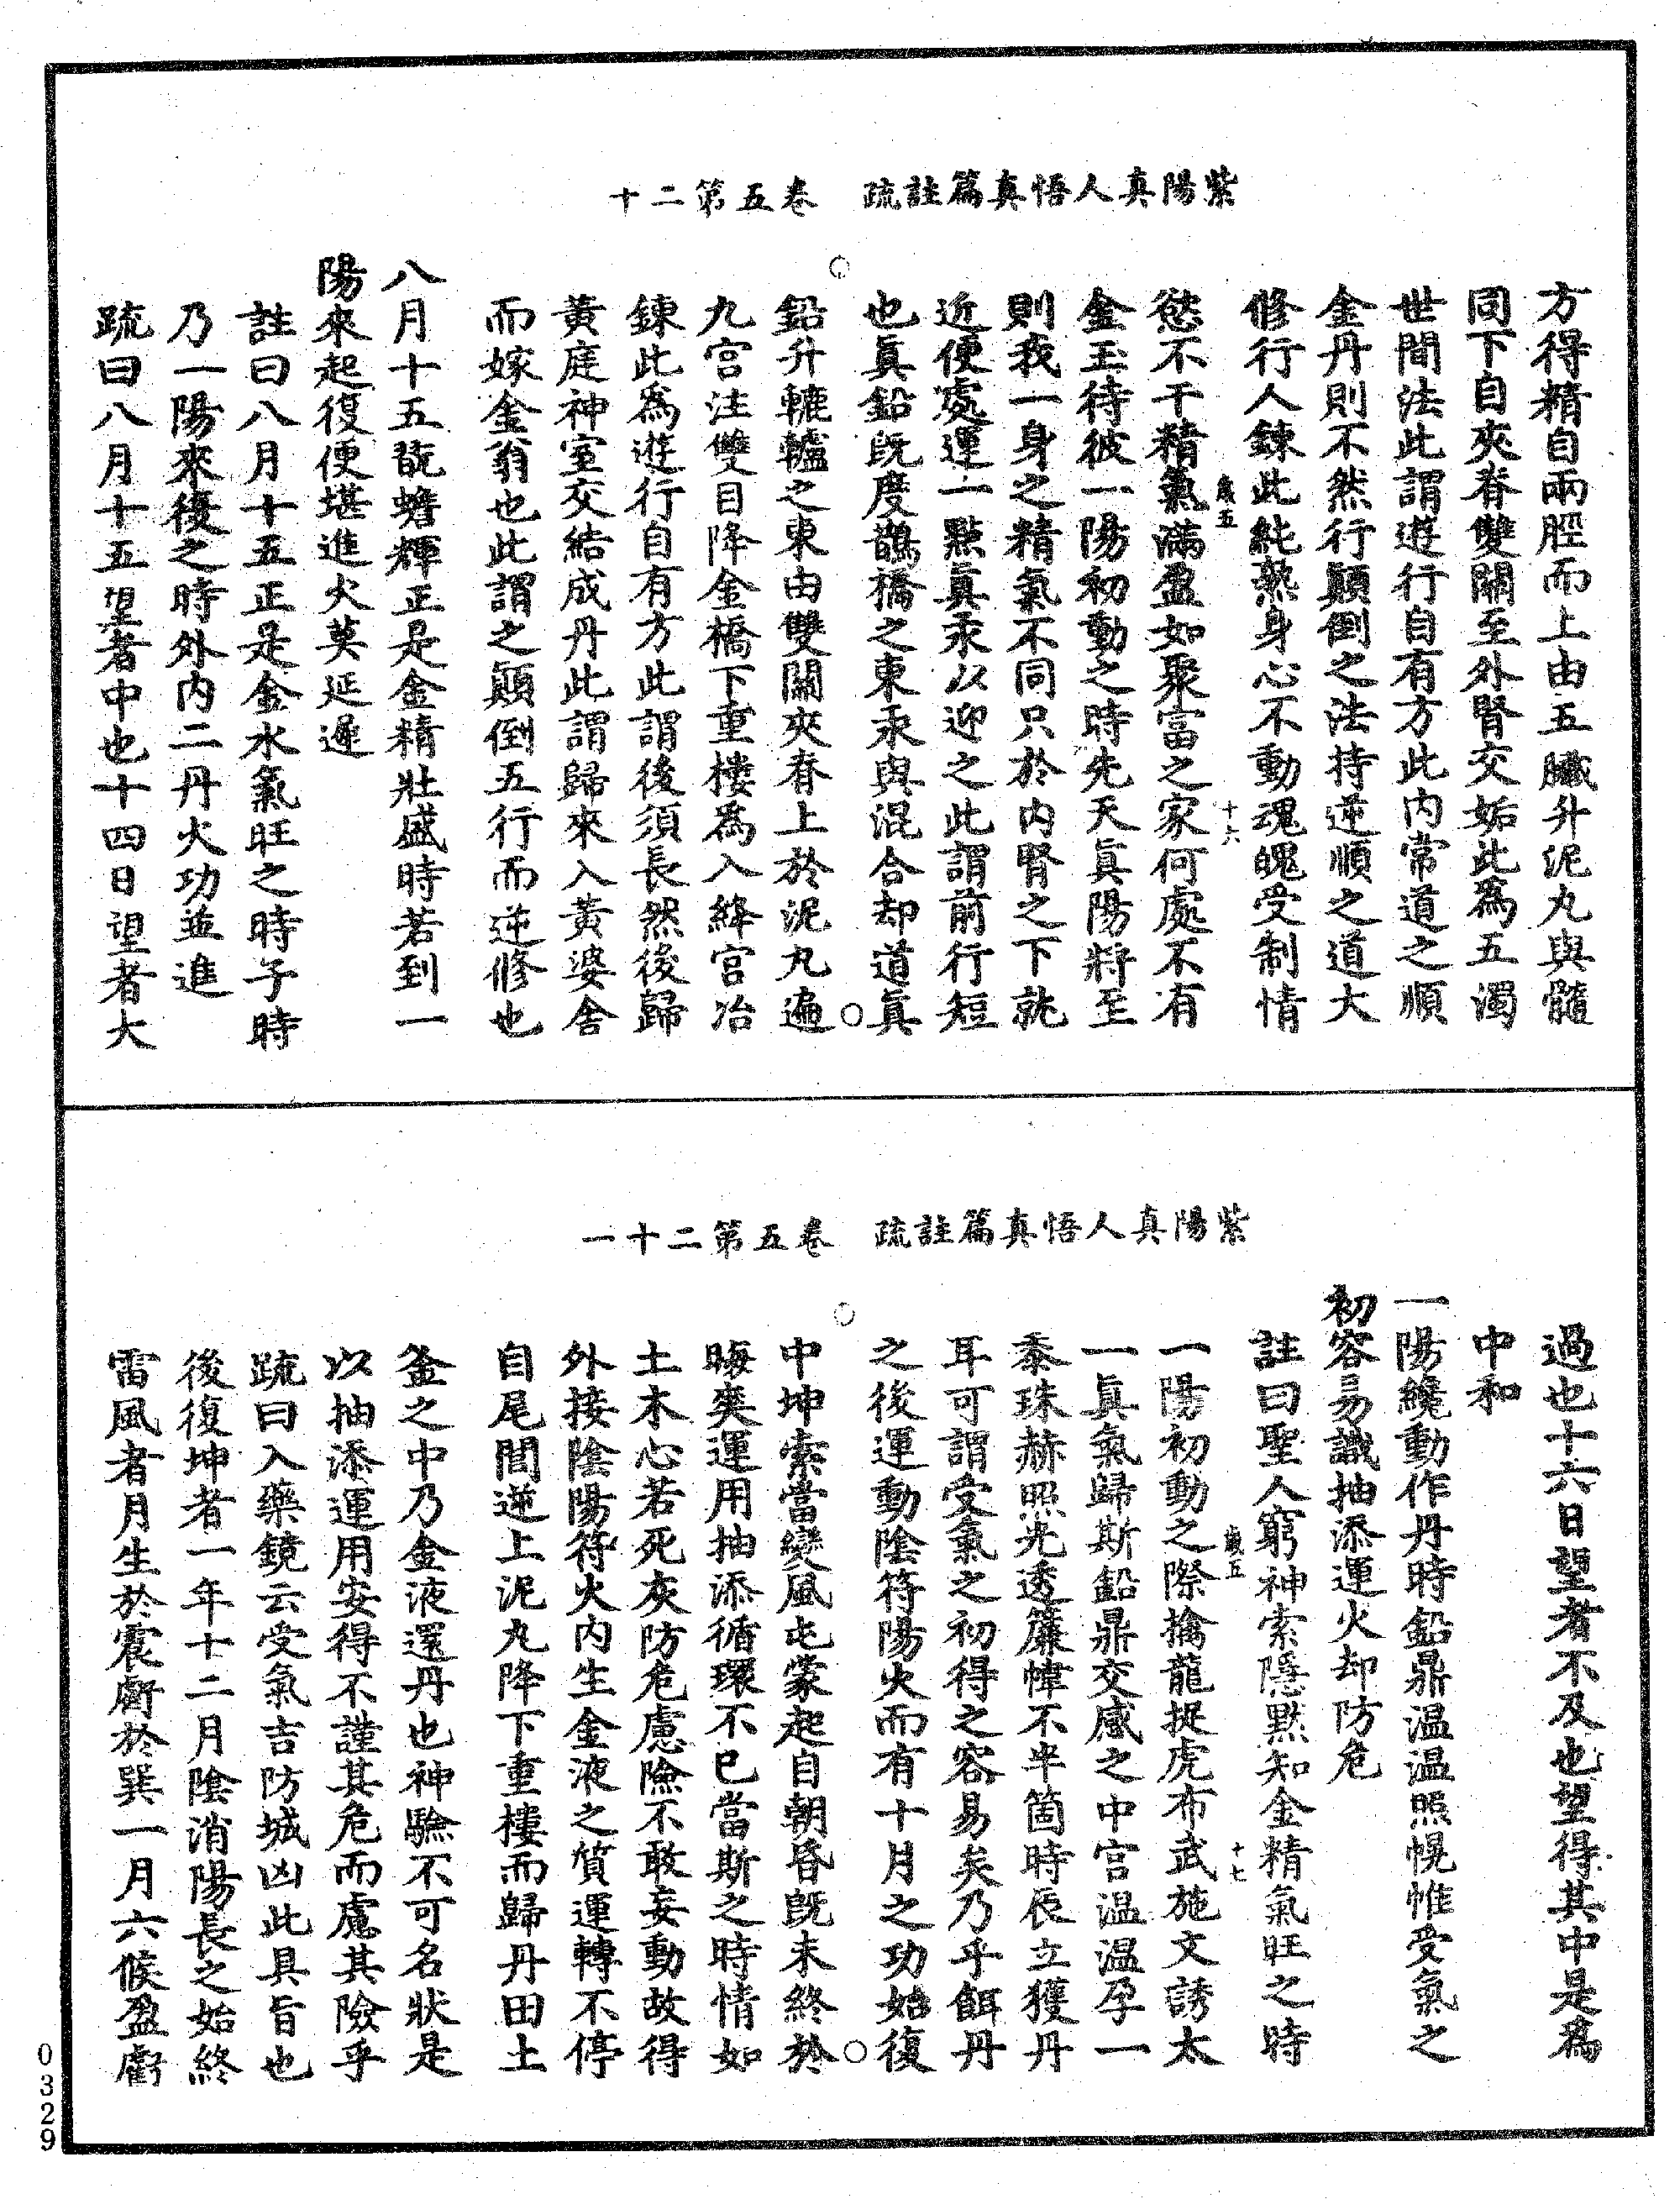 紫陽真人悟真篇註疏　卷五第二十
方得精自兩脛而上由五臟升泥丸與髓
同下自夾脊雙關至外腎交姤此為五濁
世間法此謂遊行自有方此內常道之順
金丹則不然行顛倒之法持逆順之道大
修行人鍊此純熟身心不動魂魄受制情
歲五　十六
慾不干精氣滿盈如聚富之家何處不有
金玉待彼一陽初動之時先天真陽將至
則我一身之精氣不同只於內腎之下就
近便處運一點真汞以迎之此謂前行短
也真鉛既度鵲橋之東汞與混合却道真
鉛升轆轤之東由雙關夾脊上於泥丸遍
九宮注雙目降金橋下重樓為入絳宮冶
鍊此為遊行自有方此謂後須長然後歸
黃庭神室交結成丹此謂歸來入黃婆舍
而嫁金翁也此謂之顛倒五行而逆修也
八月十五翫蟾輝正是金精壯盛時若到一
陽來起復便堪進火莫延遲
註曰八月十五正是金水氣旺之時子時
乃一陽來復之時外內二丹火功並進
疏曰八月十五望者中也十四日望者大
紫陽真人悟真篇註疏　卷五第二十一
過也十六日望者不及也望得其中是為
中和
一陽纔動作丹時鉛鼎溫溫照幌帷受氣之
初容易識抽添運火却防危
註曰聖人窮神索隱默知金精氣旺之時
歲五　十七
一陽初動之際擒龍捉虎布武施文誘太
一真氣歸斯鉛鼎交感之中宮溫溫孕一
黍珠赫照光透簾幃不半箇時辰立獲丹
耳可謂受氣之初得之容易矣乃乎餌丹
之後運動陰符陽火而有十月之功始復
中坤索當變風屯蒙起自朝昏既未終於
晦爽運用抽添循環不已當斯之時情如
土木心若死灰防危慮險不敢妄動故得
外接陰陽符火內生金液之質運轉不停
自尾閭逆上泥丸降下重樓而歸丹田土
釜之中乃金液還丹也神驗不可名狀是
以抽添運用安得不謹其危而慮其險乎
疏曰入藥鏡云受氣吉防城凶此具旨也
後復坤者一年十二月陰消陽長之始終
雷風者月生於震虧於巽一月六候盈虧
0329